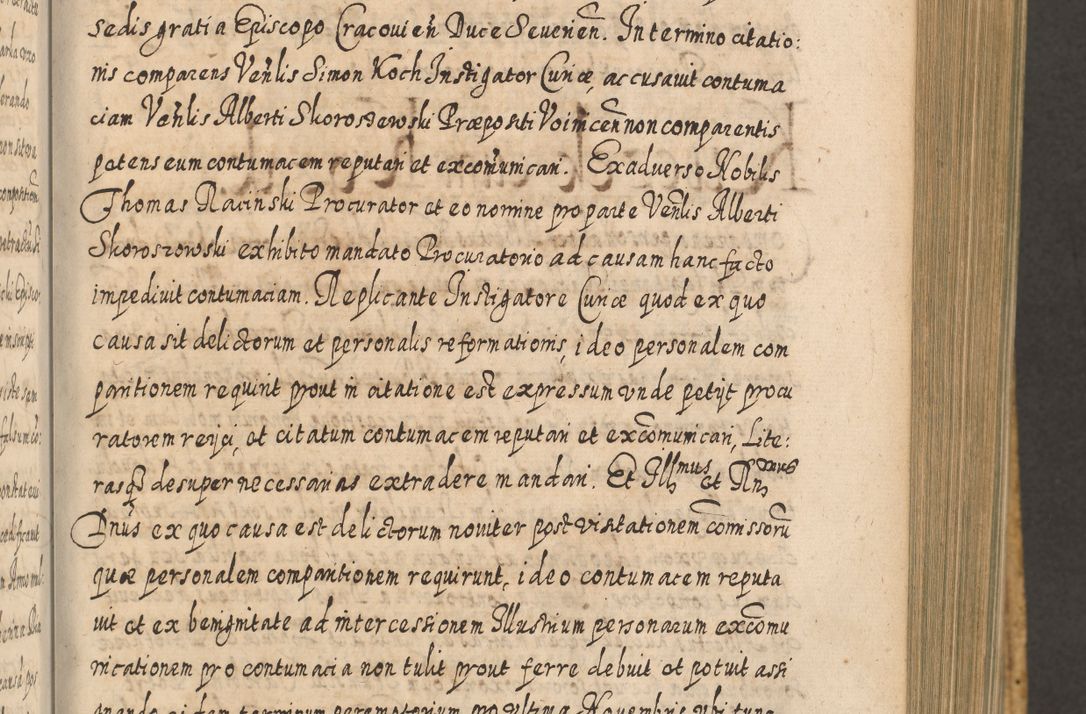 sedis gratia Episcopo Cracovien̄ Duce Severien̄. In termino citatio:
nis comparens Ven̄lis Simon Koch Instigator Curiæ, accusavit contuma
ciam Ven̄lis Alberti Skoroszewski Præpositi Voinicen̄ non comparentis
petens eum contumacem reputari et excom̄unicari. Ex adverso Nobilis
Thomas Raciński Procurator et eo nomine pro parte Ven̄lis Alberti
Skoroszowski exhibito mandato Procuratorio ad causam hanc facto
impedivit contumaciam. Replicante Instigatore Curiæ quod ex quo
causa sit delictorum et personalis reformationis, ideo personalem com
paritionem requirit prout in citatione est expressum vnde petijt procu
ratorem reijci, et citatum contumacem reputari et excōmunicari, Lite:
rasq₃ desuper necessarias extradere mandari. Et Illmus et Rndmus
Dnūs ex quo causa est delictorum noviter post visitationem cōmissorū
quæ personalem comparitionem requirunt, ideo contumacem reputa
vit et ex benignitate ad intercessionem Illustrium personarum excōmu
nicationem pro contumacia non tulit prout ferre debuit et potuit assi
gnando eidem terminum peremptorium pro vltima Novembris vbi tunc